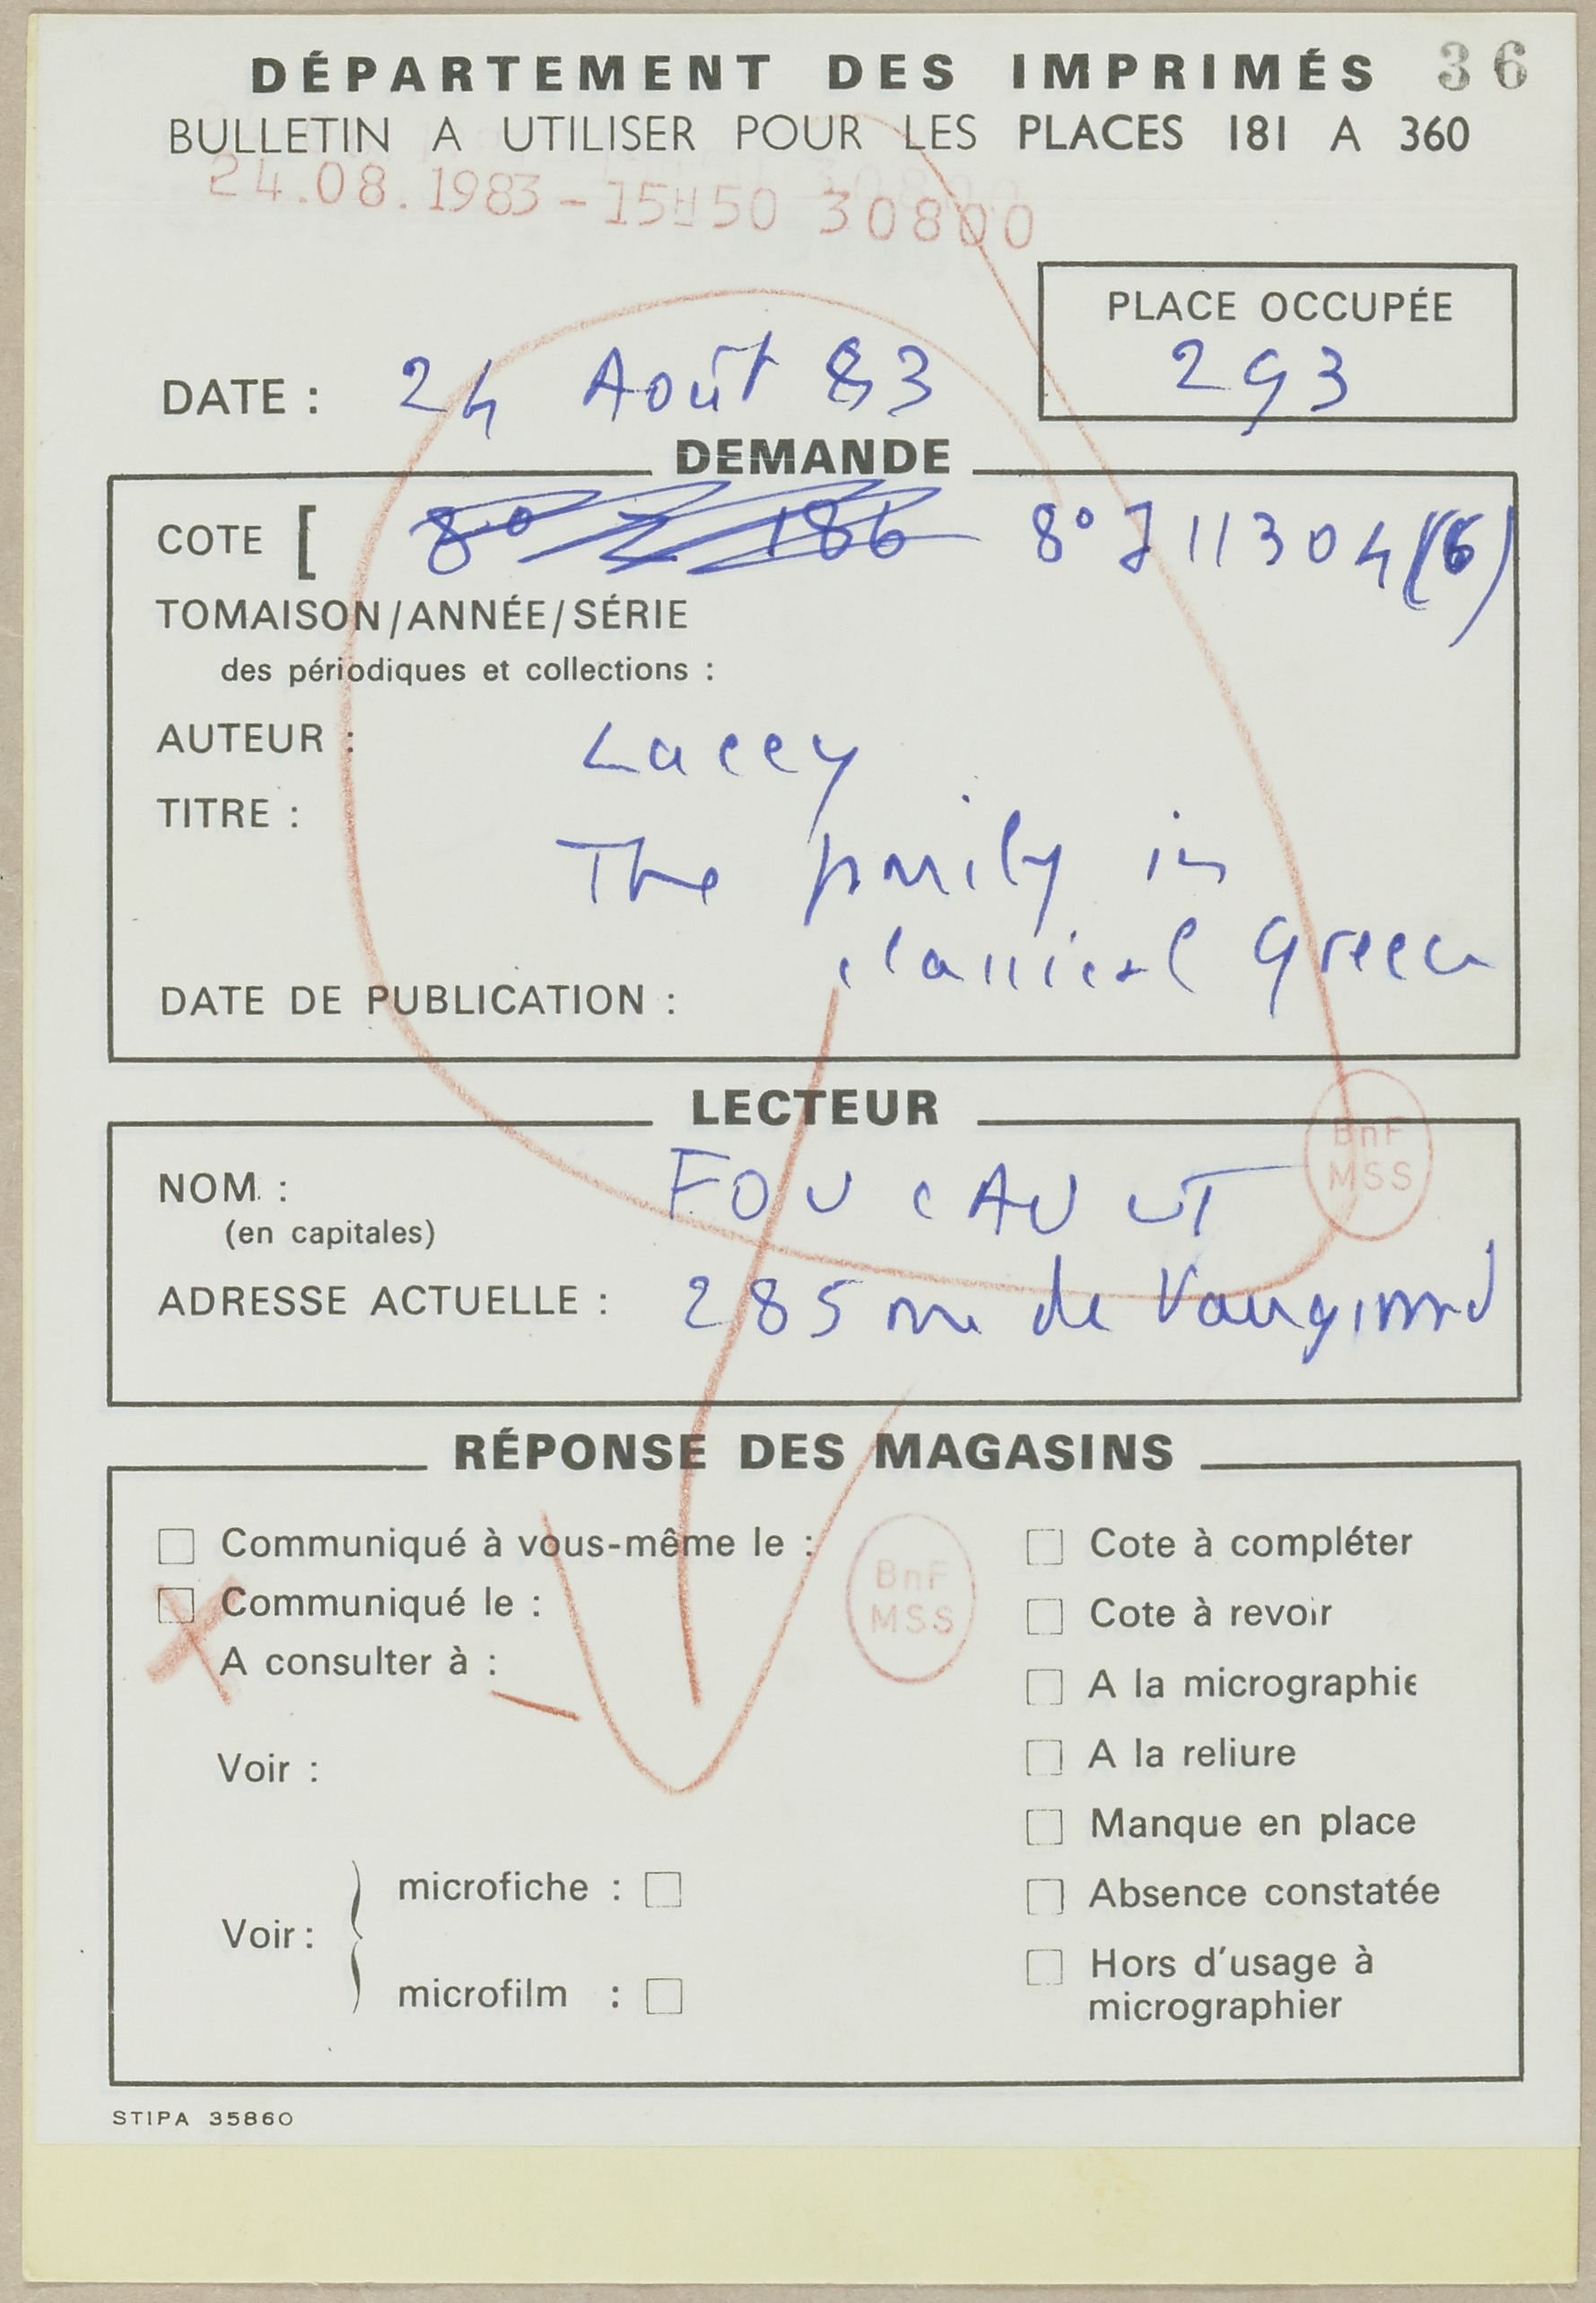 DÉPARTEMENT DES IMPRIMÉS 36
BULLETIN A UTILISER POUR LES PLACES 181 A 360
24.08.1983-15H50 30800
PLACE OCCUPÉE
293
DATE : 24 Août 83
DEMANDE
COTE [ 8° Z 186 8° J 11304 (6)
TOMAISON/ANNÉE/SÉRIE
des périodiques et collections :
AUTEUR : Lacey
TITRE : The family in
classical Greece
DATE DE PUBLICATION :
LECTEUR
BnF
MSS
NOM : FOUCAULT
(en capitales)
ADRESSE ACTUELLE : 285 rue de Vaugirard
RÉPONSE DES MAGASINS
Communiqué à vous-même le :
Communiqué le :
A consulter à :
Voir :
Voir :
microfiche :
microfilm :
BnF
MSS
Cote à compléter
Cote à revoir
A la micrographie
A la reliure
Manque en place
Absence constatée
Hors d'usage à
micrographier
STIPA 35860